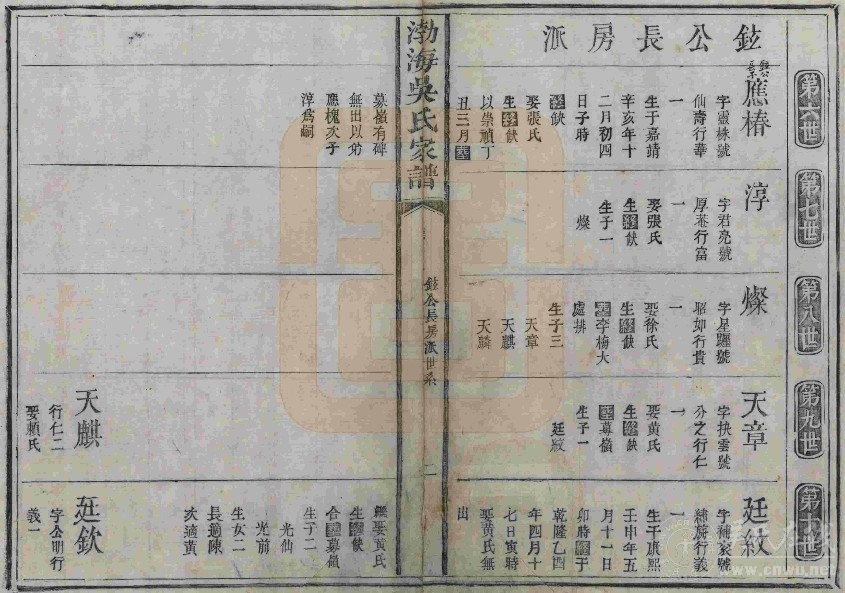 鉉公長房派
第六世
鉉公長子
應椿
字靈株號
仙壽行華
一
生于嘉靖
辛亥年十
二月初四
日子時
終缺
娶張氏
生終缺
以崇禎丁
丑三月葬
募嶺有碑
無出以弟
應槐次子
淳爲嗣
第七世
淳
字君亮號
厚菴行富
一
娶張氏
生終缺
生子一
燦
第八世
燦
字星躔號
昭如行貴
一
娶徐氏
生終缺
葬李梅大
處排
生子三
天章
天麒
天麟
第九世
天章
字抉雲號
分之行仁
一
娶黄氏
生終缺
葬募嶺
生子一
廷紋
天麒
行仁二
娶賴氏
第十世
廷紋
字補衮號
繡旖行義
一
生于康熙
壬申年五
月十一日
卯時終于
乾隆乙酉
年四月十
七日寅時
娶黄氏無
出
繼娶黄氏
生終缺
合葬募嶺
生子二
光仙
光前
生女二
長適陳
次適黄
廷欽
字公明行
義一
渤海吳氏家譜
鉉公長房派世系
二
www.cnwu.net